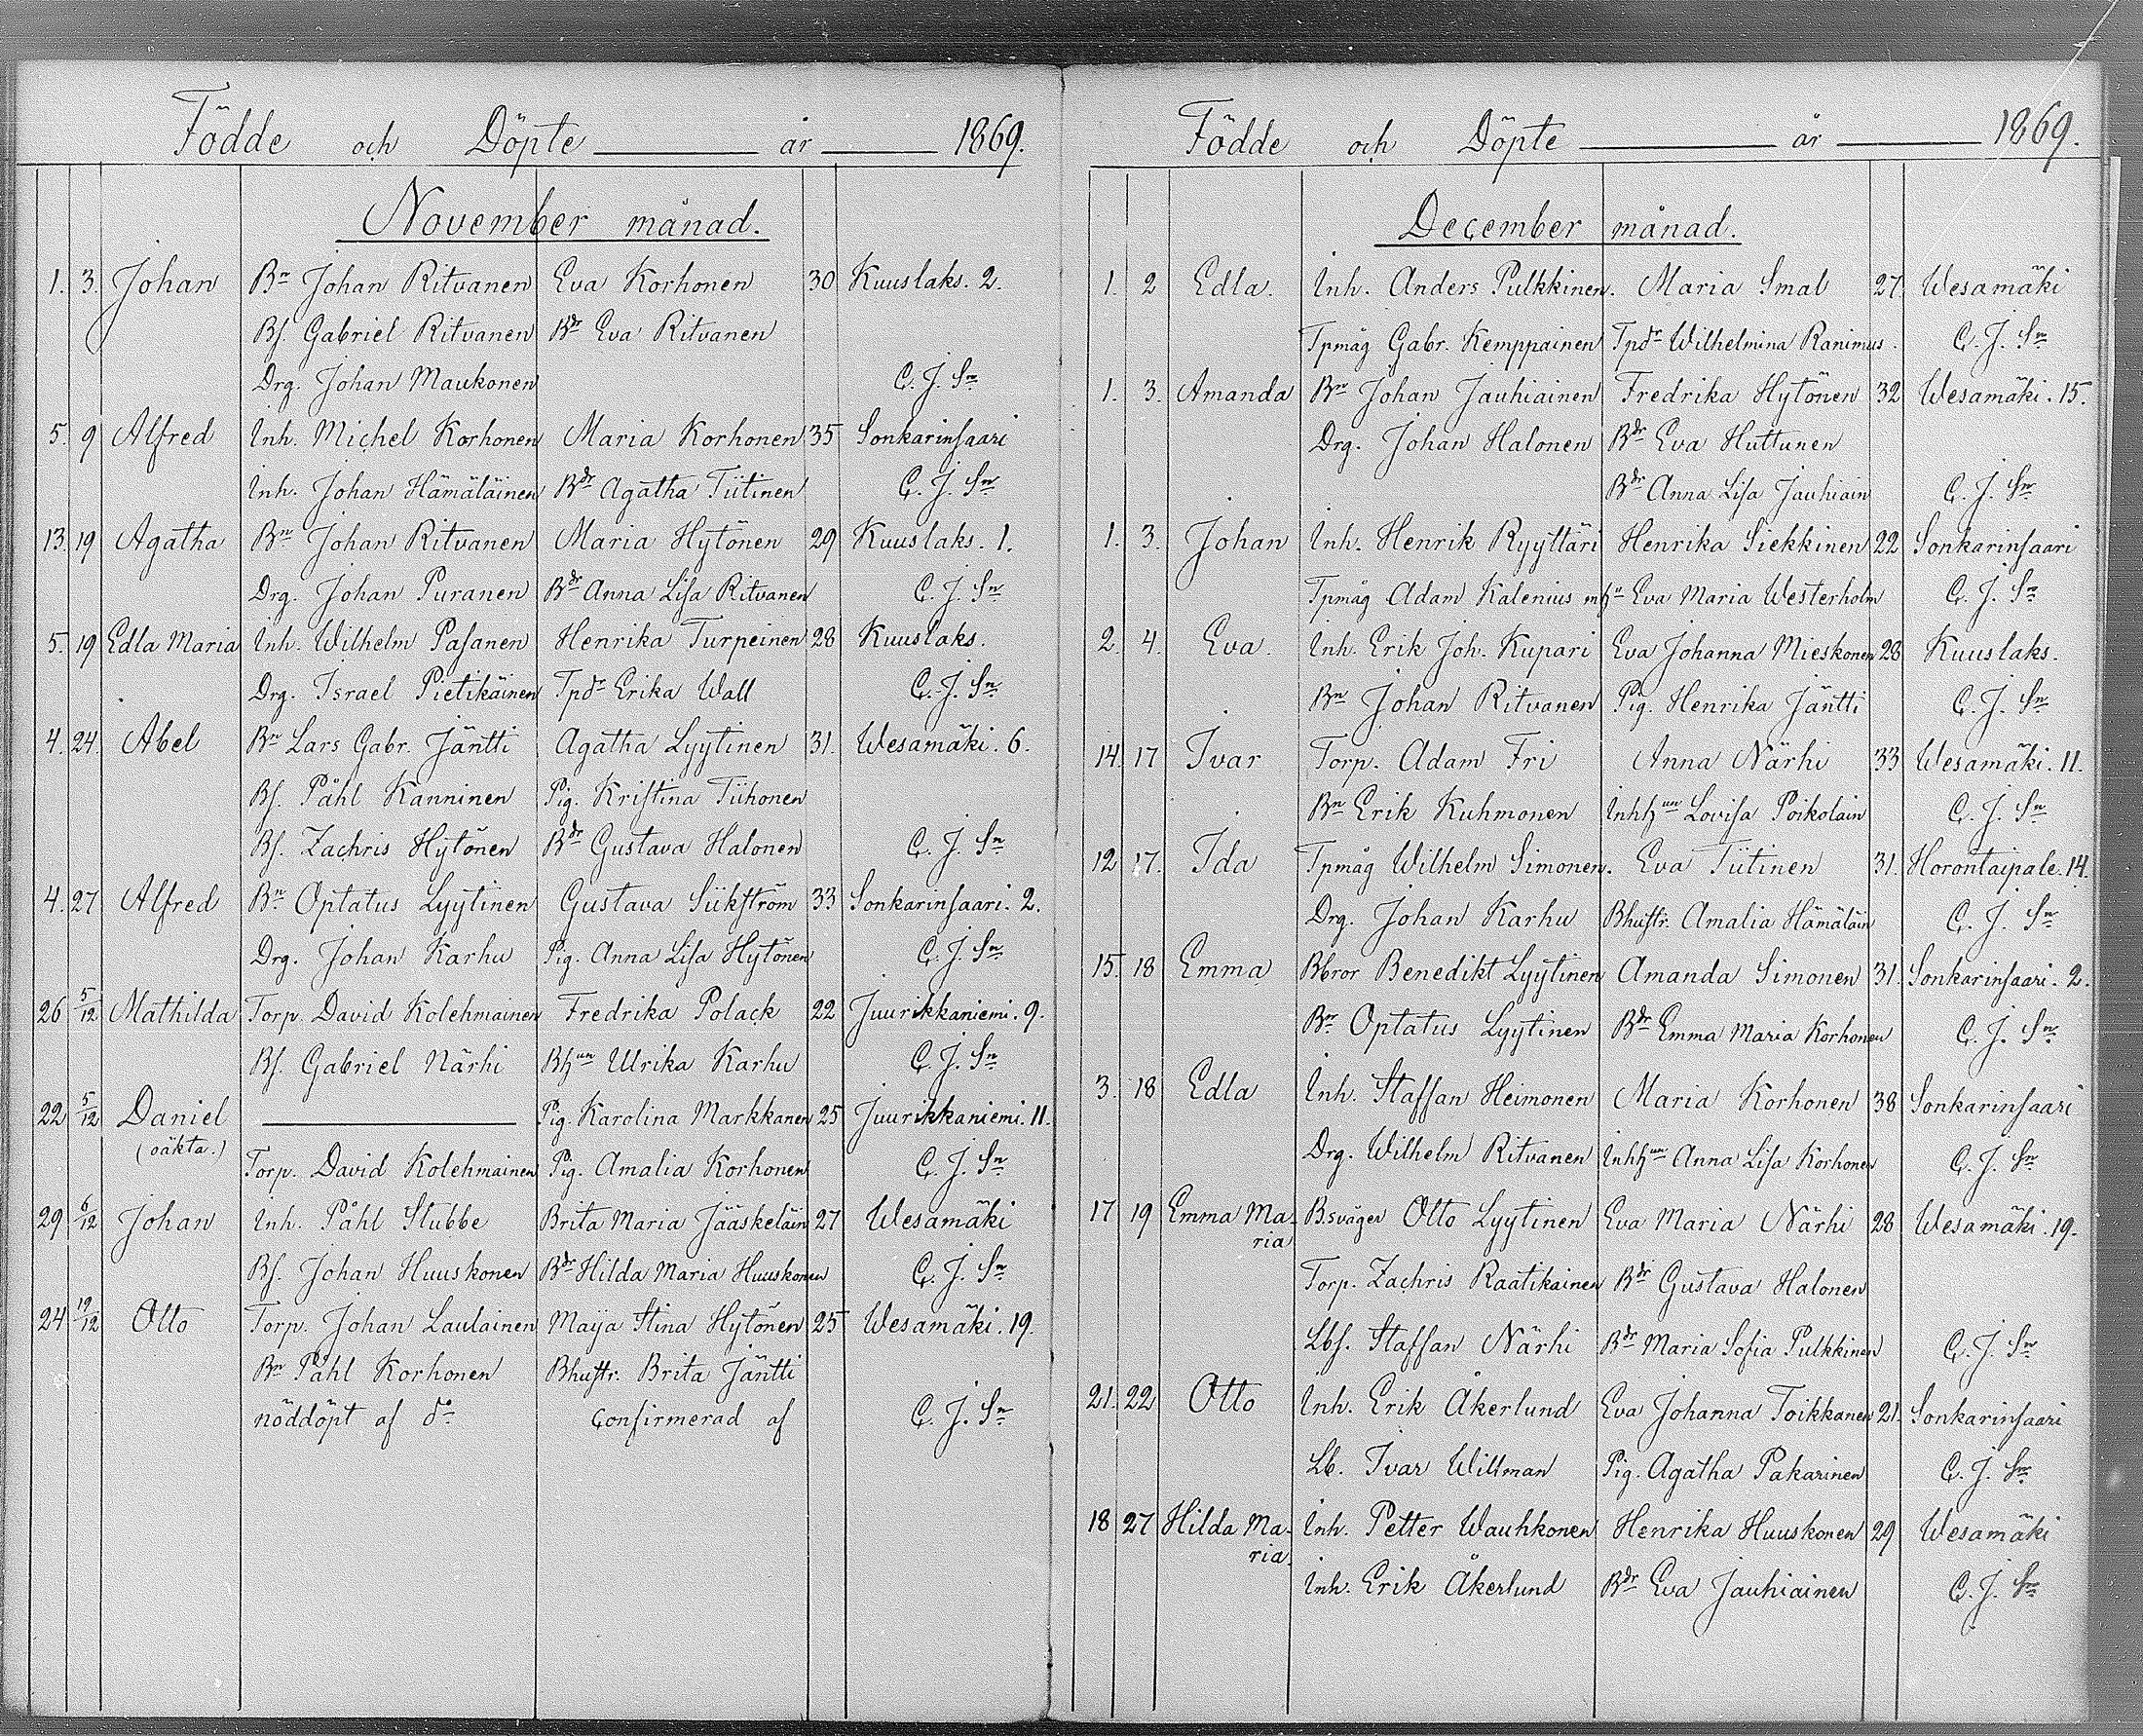 Födde och Döpte år 1869.
November månad.
1. 3. Johan Bn Johan Ritvanen Eva Korhonen 30 Kuuslaks. 2.
Bs. Gabriel Ritvanen Bdr Eva Ritvanen
Drg. Johan Maukonen C. J. Sn
5. 9 Alfred Inh. Michel Korhonen Maria Korhonen 35 Sonkarinsaari
Inh. Johan Hämäläinen Bdr Agatha Tiitinen C. J. Sn
13. 19 Agatha Bn Johan Ritvanen Maria Hytönen 29 Kuuslaks. 1.
Drg. Johan Puranen Bdr Anna Lisa Ritvanen C. J. Sn
5. 19 Edla Maria Inh. Wilhelm Pasanen Henrika Turpeinen 28 Kuuslaks.
Drg. Israel Pietikäinen Tpdr Erika Wall C. J. Sn
4. 24. Abel Bn Lars Gabr. Jäntti Agatha Lyytinen 31. Wesamäki. 6.
Bs. Påhl Kanninen Pig. Kristina Tiihonen
Bs. Zachris Hytönen Bdr Gustava Halonen C. J. Sn
4. 27 Alfred Bn Optatus Lyytinen Gustava Siikström 33 Sonkarinsaari. 2.
Drg. Johan Karhu Pig. Anna Lisa Hytönen C. J. Sn
26 5/12 Mathilda Torp. David Kolehmainen Fredrika Polack 22 Juurikkaniemi. 9.
Bs. Gabriel Närhi Bhun Ulrika Karhu C. J. Sn
22 5/12 Daniel Pig. Karolina Markkanen 25 Juurikkaniemi. 11.
(oäkta.)
Torp. David Kolehmainen Pig. Amalia Korhonen C. J. Sn
29 6/12 Johan Inh. Påhl Stubbe Brita Maria Jääskeläin 27 Wesamäki
Bs. Johan Huuskonen Bdr Hilda Maria Huuskonen C. J. Sn
24 19/12 Otto Torp. Johan Laulainen Maija Stina Hytönen 25 Wesamäki. 19.
Bn Påhl Korhonen Bhustr. Brita Jäntti
nöddöpt af do confirmerad af C. J. Sn
Födde och Döpte år 1869.
December månad.
1. 2 Edla. Inh. Anders Pulkkinen. Maria Smal 27. Wesamäki
Tpmåg Gabr. Kemppainen Tpdr Wilhelmina Ranimus. C. J. Sn
1. 3. Amanda Bn Johan Jauhiainen Fredrika Hytönen 32 Wesamäki. 15.
Drg. Johan Halonen Bdr Eva Huttunen
Bdr Anna Lisa Jauhiain C. J. Sn
1. 3. Johan Inh. Henrik Ryyttäri Henrika Siekkinen 22 Sonkarinsaari
Tpmåg Adam Kalenius mhu Eva Maria Westerholm C. J. Sn
2. 4. Eva. Inh. Erik Joh. Kupari Eva Johanna Mieskonen 28 Kuuslaks.
Bn Johan Ritvanen Pig. Henrika Jäntti C. J. Sn
14. 17 Ivar Torp. Adam Fri Anna Närhi 33 Wesamäki. 11.
Bn Erik Kuhmonen Inhhun Lovisa Poikolain C. J. Sn
12 17. Ida Tpmåg Wilhelm Simonen. Eva Tiitinen 31. Horontaipale. 14.
Drg. Johan Karhu Bhustr. Amalia Hämäläin C. J. Sn
15. 18 Emma Bbror Benedikt Lyytinen Amanda Simonen 31. Sonkarinsaari. 2.
Bn Optatus Lyytinen Bdr Emma Maria Korhonen C. J. Sn
3. 18 Edla Inh. Staffan Heimonen Maria Korhonen 38 Sonkarinsaari
Drg. Wilhelm Ritvanen Inhhun Anna Lisa Korhonen C. J. Sn
17 19 Emma Ma- B.svåger Otto Lyytinen Eva Maria Närhi 28 Wesamäki. 19.
ria
Torp. Zachris Raatikainen Bdr Gustava Halonen
Lbs. Staffan Närhi Bdr Maria Sofia Pulkkinen C. J. Sn
21. 22 Otto Inh. Erik Åkerlund Eva Johanna Toikkanen 21. Sonkarinsaari
Lb. Ivar Willman Pig. Agatha Pakarinen C. J. Sn
18 27 Hilda Ma- Inh. Petter Wauhkonen Henrika Huuskonen 29 Wesamäki
ria.
Inh. Erik Åkerlund Bdr Eva Jauhiainen C. J. Sn